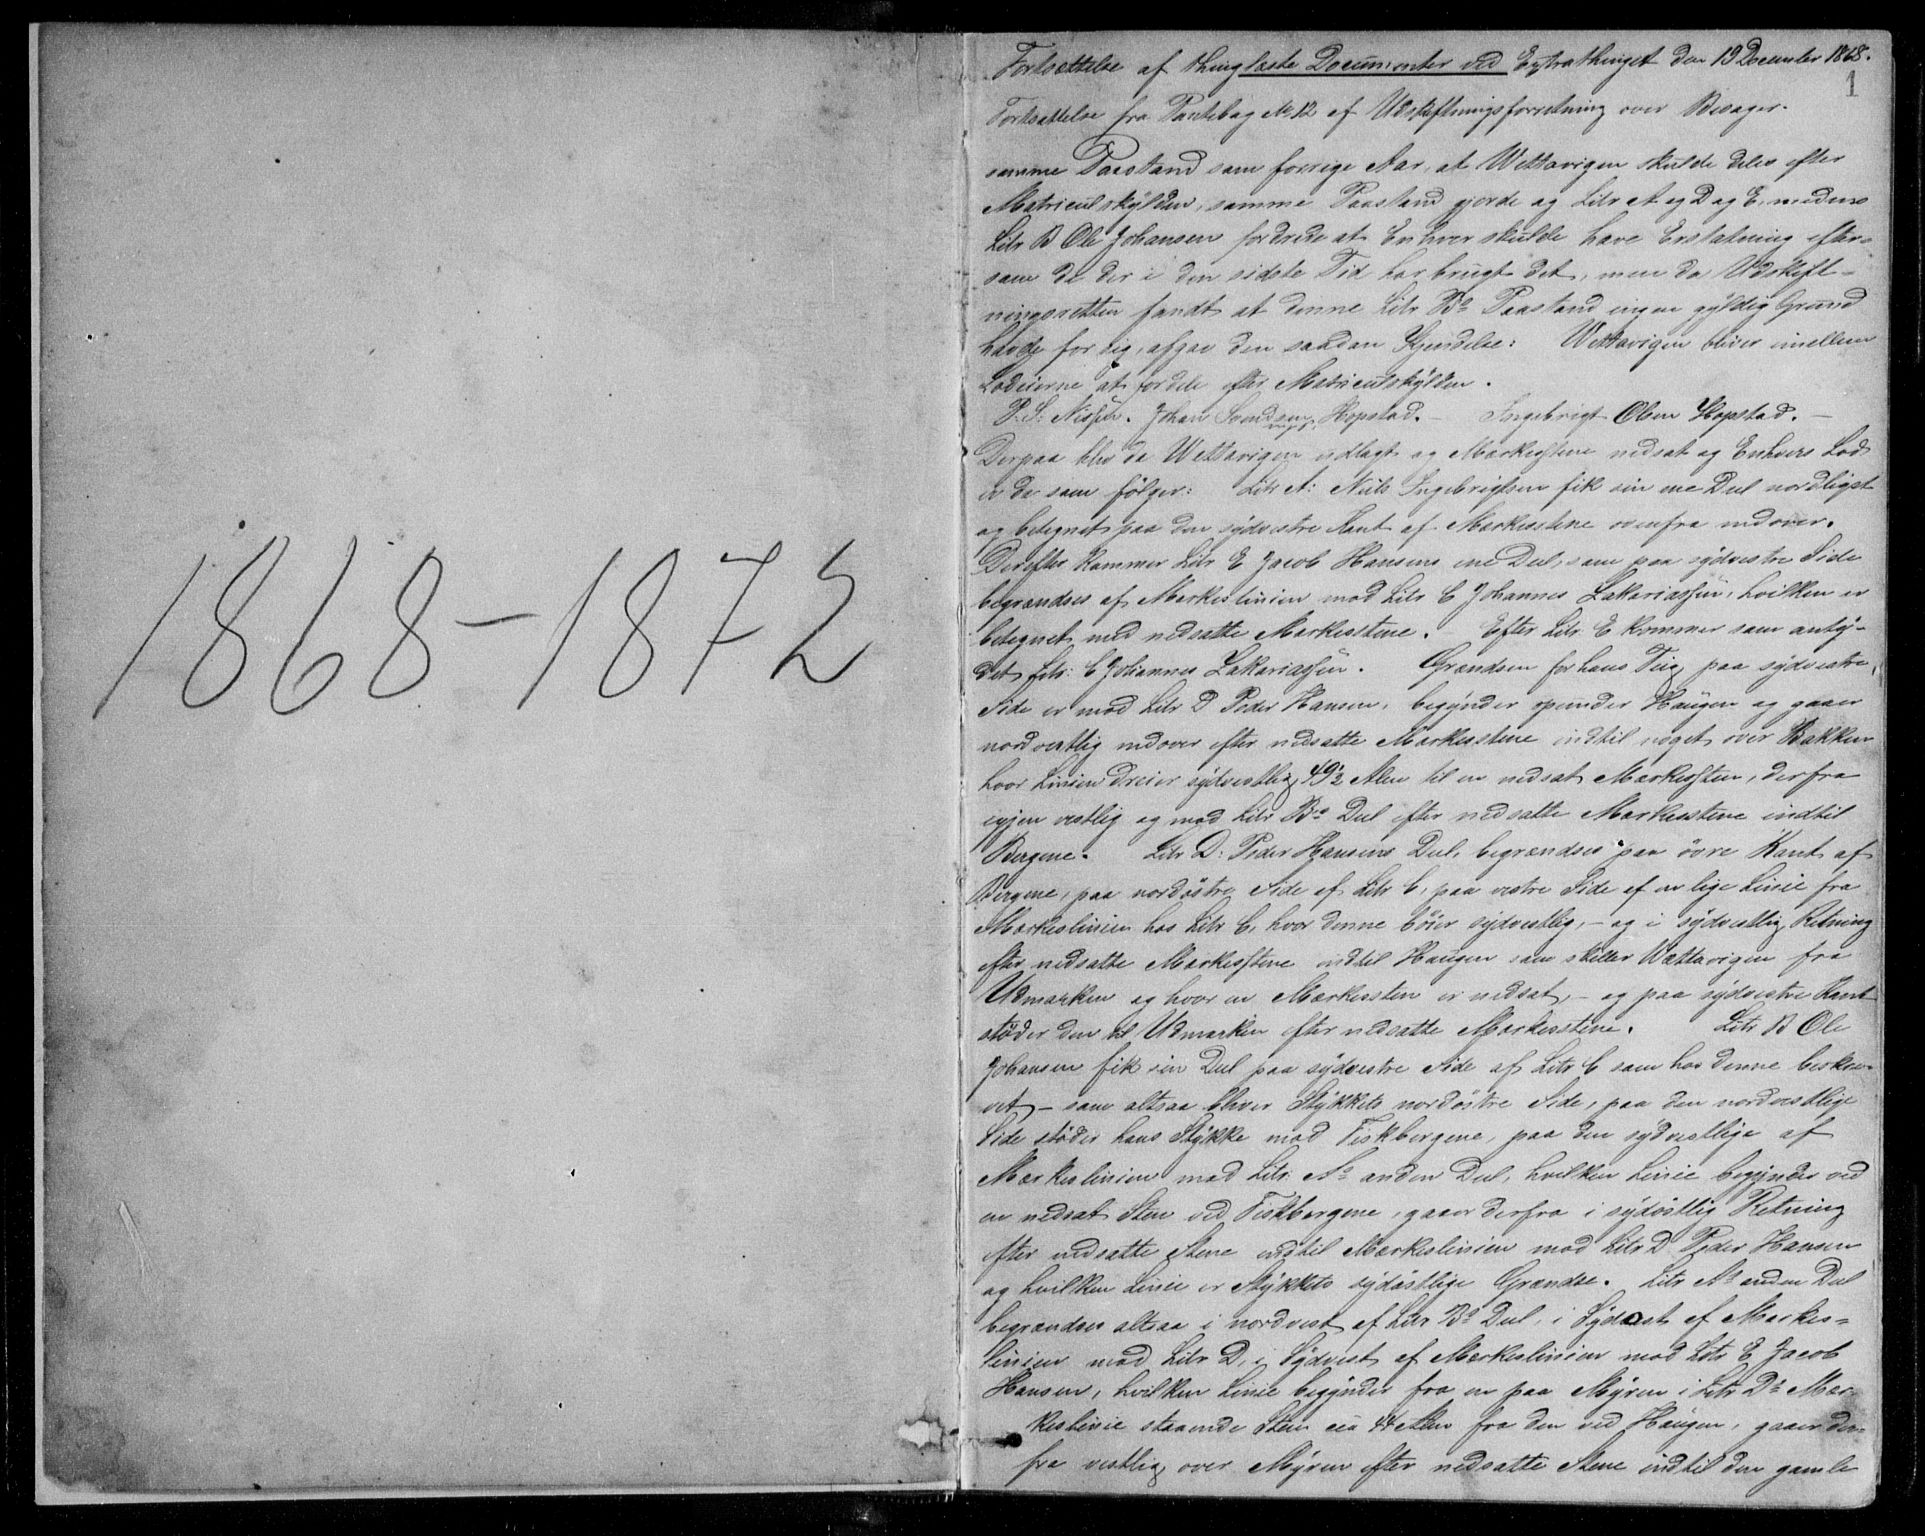 1868-1872
Fortsættelse af thinglæste Documenter ved Extrathinget den 19 December 1868.
1
Fortsættelse fra Pantebog No 12 af Udskiftningsforretning over Bevager.
samme Paastand som forrige Aar, at Wettavigen skulde deles efter
Matriculskylden, samme Paastand gjorde og Litr A og D og E, medens
Litr B Ole Johansen fordrede at Enhver skulde have Erstatning efter-
som de der i den sidste Tid har brugt det, men da Udskift-
ningsretten fandt at denne Litr Bs Paastand ingen gyldig Grund
havde for sig, afgav den saadan Kjendelse: Wettavigen bliver imellem
Lodeierne at fordele efter Matriculskylden.
P. S. Nissen. Johan Svendsen Hopstad. - Ingebrigt Olsen Hopstad. -
Derpaa blev da Wettavigen udlagt og Markestene nedsat og Enhvers Lod
er da som følger: Litr A: Niels Ingebrigtsen fik sin ene Deel nordligst
og betegnet paa den sydvestre Kant af Markestene ovenfra nedover.
Derefter kommer Litr E Jacob Hansens ene Deel, som paa sydvestre Side
begrændses af Merkeslinien mod Litr C Johannes Zakariassen, hvilken er
betegnet med nedsatte Merkesstene. Efter Litr E kommer som anty-
det Litr: C Johannes Zakariassen. Grændsen for hans Teig paa sydvestre
Side er mod Litr D Peder Hansen, begynder opunder Haugen og gaaer
nordvestlig nedover efter nedsatte Merkesstene indtil noget over Bakken
hvor Linien dreier sydvestlig 49½ Alen til en nedsat Merkessten, derfra
igjen vestlig og mod Litr Bs Deel efter nedsatte Merkesstene indtil
Bergene. Litr D: Peder Hansens Deel, begrændses paa øvre Kant af
Bergene, paa nordøstre Side af Litr C, paa vestre Side af en lige Linie fra
Merkeslinien hos Litr C, hvor denne bøier sydvestlig, - og i sydvestlig Retning
efter nedsatte Merkesstene indtil Haugen som skiller Wættavigen fra
Udmarken og hvor en Merkessten er nedsat, - og paa sydvestre Kant
støder den til Udmarken efter nedsatte Merkesstene. Litr B Ole
Johansen fik sin Deel paa sydvestre Side af Litr C som hos denne beskre-
vet - som altsaa bliver Stykkets nordøstre Side, paa den nordvestlige
Side støder hans Stykke mod Fiskbergene, paa den sydvestlige af
Merkeslinien mod Litr As anden Deel, hvilken Linie begynder ved
en nedsat Sten ved Fiskbergene, gaaer derfra i sydøstlig Retning
efter nedsatte Stene indtil Merkeslinien mod Litr D Peder Hansen
og hvilken Linie er Stykkets sydøstlige Grændse. Litr As anden Deel
begrændses altsaa i nordvest af Litr Bs Deel, i Sydost af Merkes-
linien mod Litr D, i Sydvest af Merkeslinien mod Litr E Jacob
Hansen, hvilken Linie begynder fra en paa Myren i Litr Ds Mer-
keslinie staaende Sten 44 Alen fra den ved Haugen, gaaer der-
fra vestlig over Myren efter nedsatte Stene indtil den gamle